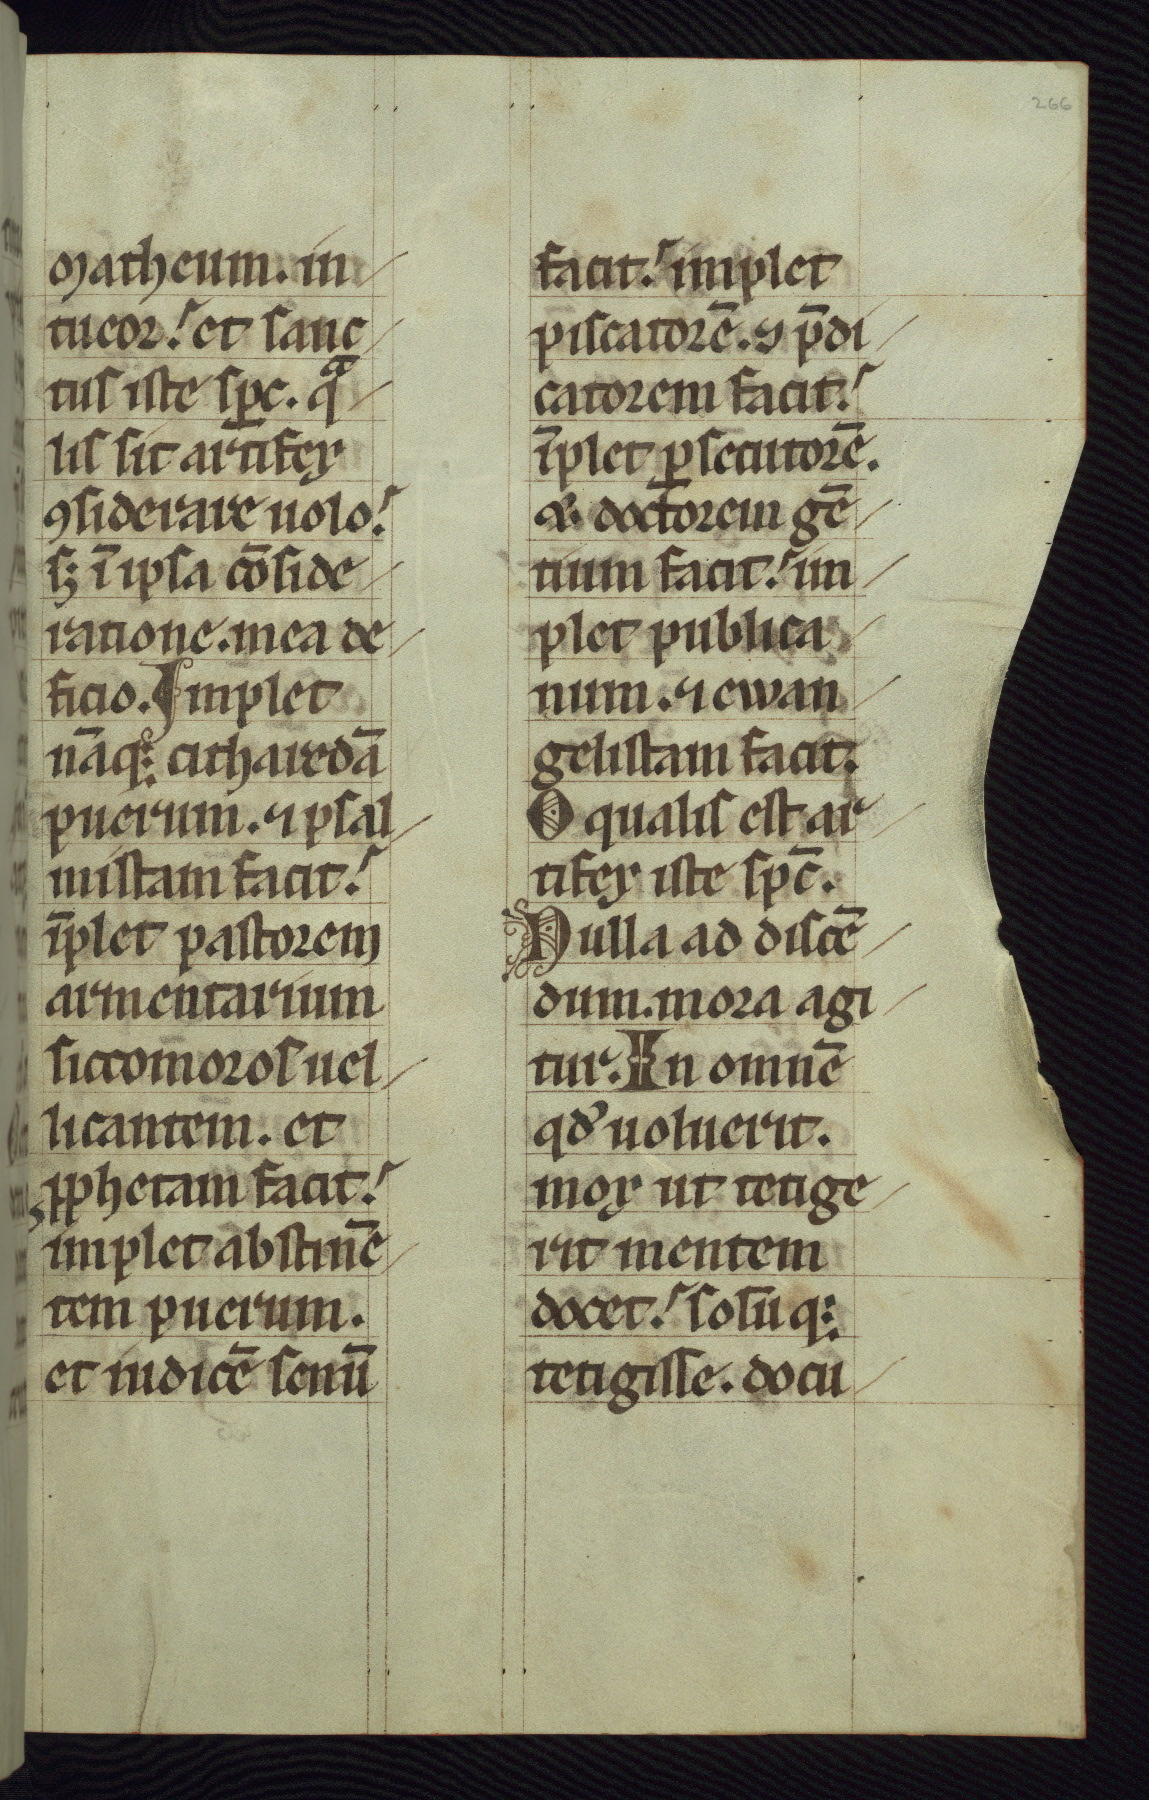 266
Matheum. in
tueor. et sanc
tus iste sp̄c. qͣ
lis sit artifex
ꝯsiderare uolo.
sꝫ ī ipsa cōside
ratione. mea de
ficio. Implet
nāqꝫ citharedā
puerum. ⁊ psal
mistam facit.
īplet pastorem
armentarium
siccomoros uel
licantem. et
ꝓphetam facit.
implet abstinē
tem puerum.
et iudicē senū
facit. implet
piscatorē. ⁊ p̄di
catorem facit.
īplet ꝑsecutorē.
⁊ doctorem gē
tium facit. im
plet publica
num. ⁊ ewan
gelistam facit.
O qualis est ar
tifex iste sp̄c.
Nulla ad discē
dum. mora agi
tur. In omnē
qd̓ uoluerit.
mox ut tetige
rit mentem
docet. solūqꝫ
tetigisse. docu